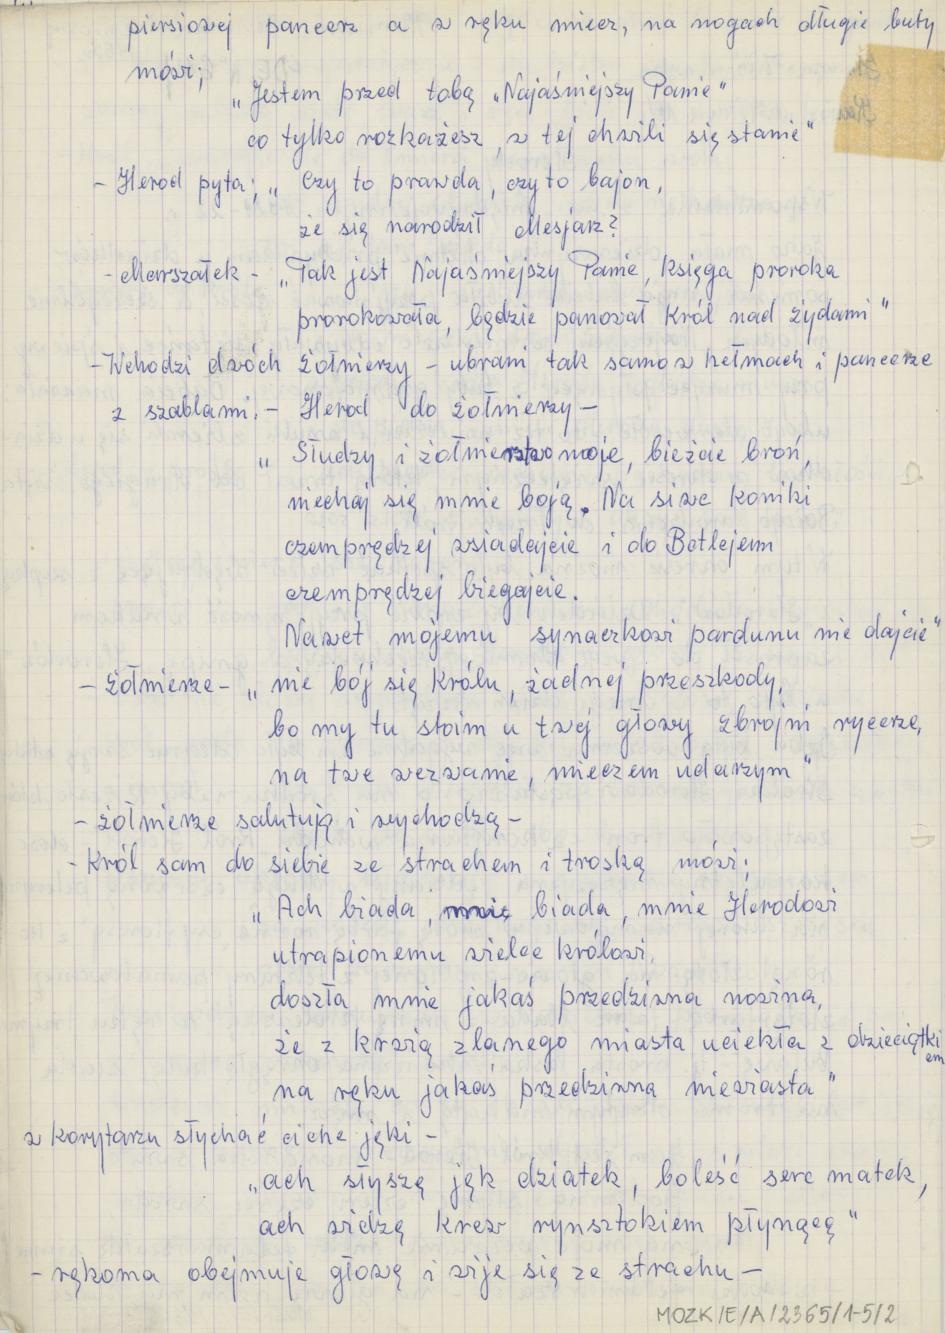 piersiowej pancerz a w ręku miecz, na nogach długie buty
mówi;
„Jestem przed tobą „Najaśniejszy Panie"
co tylko rozkażesz, w tej chwili się stanie"
- Herod pyta; „ Czy to prawda, czy to bajon,
że się narodził Mesjasz?
- Marszałek - „Tak jest Najaśniejszy Panie, księga proroka
prorokowała, będzie panował Król nad żydami"
- Wchodzi dwóch żołnierzy - ubrani tak samo w hełmach i pancerze
z szablami. - Herod do żołnierzy -
„ Słudzy i żołnierstwo moje, bieźcie broń,
niechaj się mnie boją. Na siwe koniki
czemprędzej wsiadajcie i do Betlejem
czemprędzej biegajcie.
Nawet mojemu synaczkowi pardunu nie dajcie"
- żołnierze - „ nie bój się Królu, żadnej przeszkody,
bo my tu stoim u twej głowy zbrojni rycerze,
na twe wezwanie, mieczem udarzym"
- żołnierze salutują i wychodzą -
- Król sam do siebie ze strachem i troską mówi;
„ Ach biada, biada, mnie Herodowi
utrapionemu wielce królowi,
doszła mnie jakaś przedziwna nowina,
że z krwią zlanego miasta uciekła z dzieciątkiem
na ręku jakaś przedziwna niewiasta"
w korytarzu słychać ciche jęki -
„ach słyszę jęk dziatek, boleść serc matek,
ach widzę krew rynsztokiem płynącą"
- rękoma obejmuje głowę i wije się ze strachu -
MOZK/E/A/2365/1-5/2